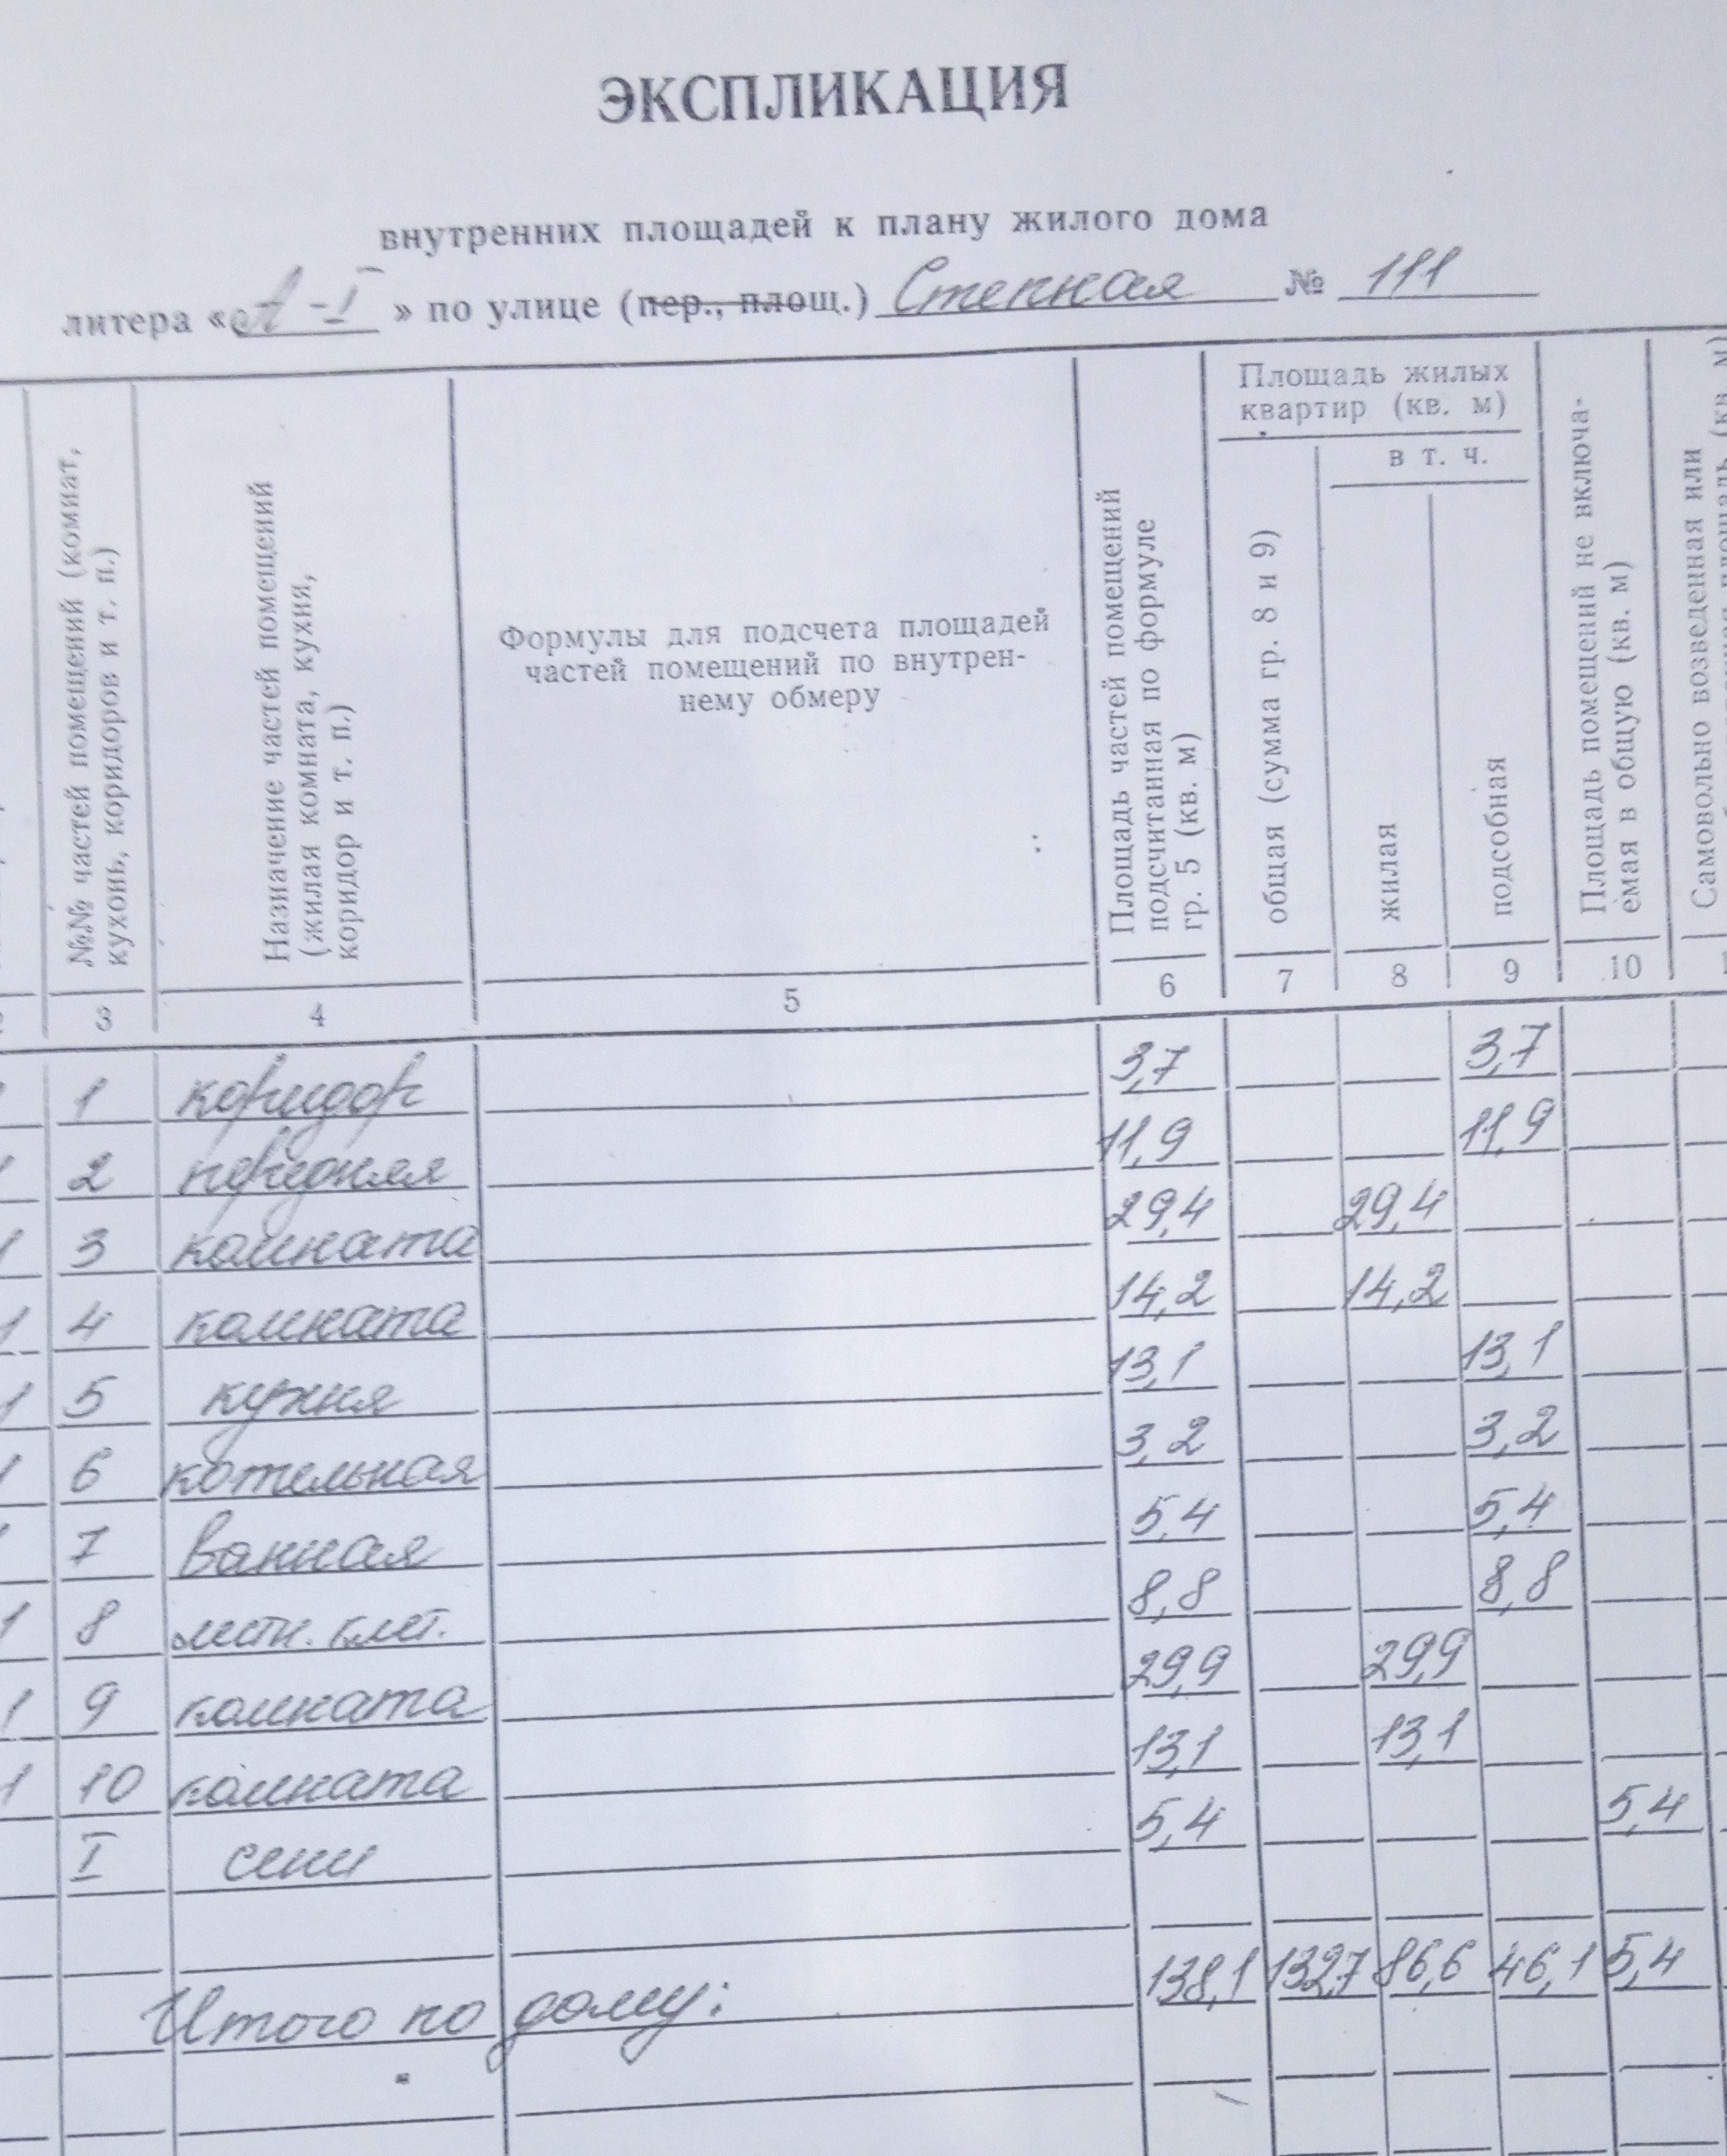 ЭКСПЛИКАЦИЯ
внутренних площадей к плану жилого дома
литера «А-I» по улице (пер., площ.) Степная № 111
№№ частей помещений (комнат,
кухонь, коридоров и т. п.)
Назначение частей помещений
(жилая комната, кухня,
коридор и т. п.)
Формулы для подсчета площадей
частей помещений по внутрен-
нему обмеру
Площадь частей помещений
подсчитанная по формуле
гр. 5 (кв. м)
Площадь жилых
квартир (кв. м)
в т. ч.
общая (сумма гр. 8 и 9)
жилая
подсобная
Площадь помещений не включа-
емая в общую (кв. м)
Самовольно возведенная или
3 4 5 6 7 8 9 10
1 коридор 3,7 3,7
2 передняя 11,9 11,9
1 3 комната 29,4 29,4
1 4 комната 14,2 14,2
1 5 кухня 13,1 13,1
1 6 котельная 3,2 3,2
7 ванная 5,4 5,4
1 8 лестн. клет. 8,8 8,8
1 9 комната 29,9 29,9
1 10 комната 13,1 13,1
I сени 5,4 5,4
Итого по дому: 138,1 132,7 86,6 46,1 5,4